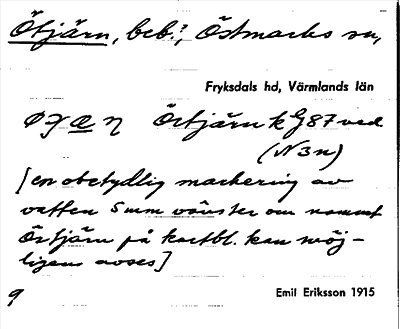 Ötjärn, beb.?, Östmarks sn,
Fryksdals hd, Värmlands län
Örtjärn k G87 ved
(N3n)
[en obetydlig markering av
vatten 5 mm vänster om namnet
Örtjärn på kartbl. kan möj-
ligen avses]
9
Emil Eriksson 1915